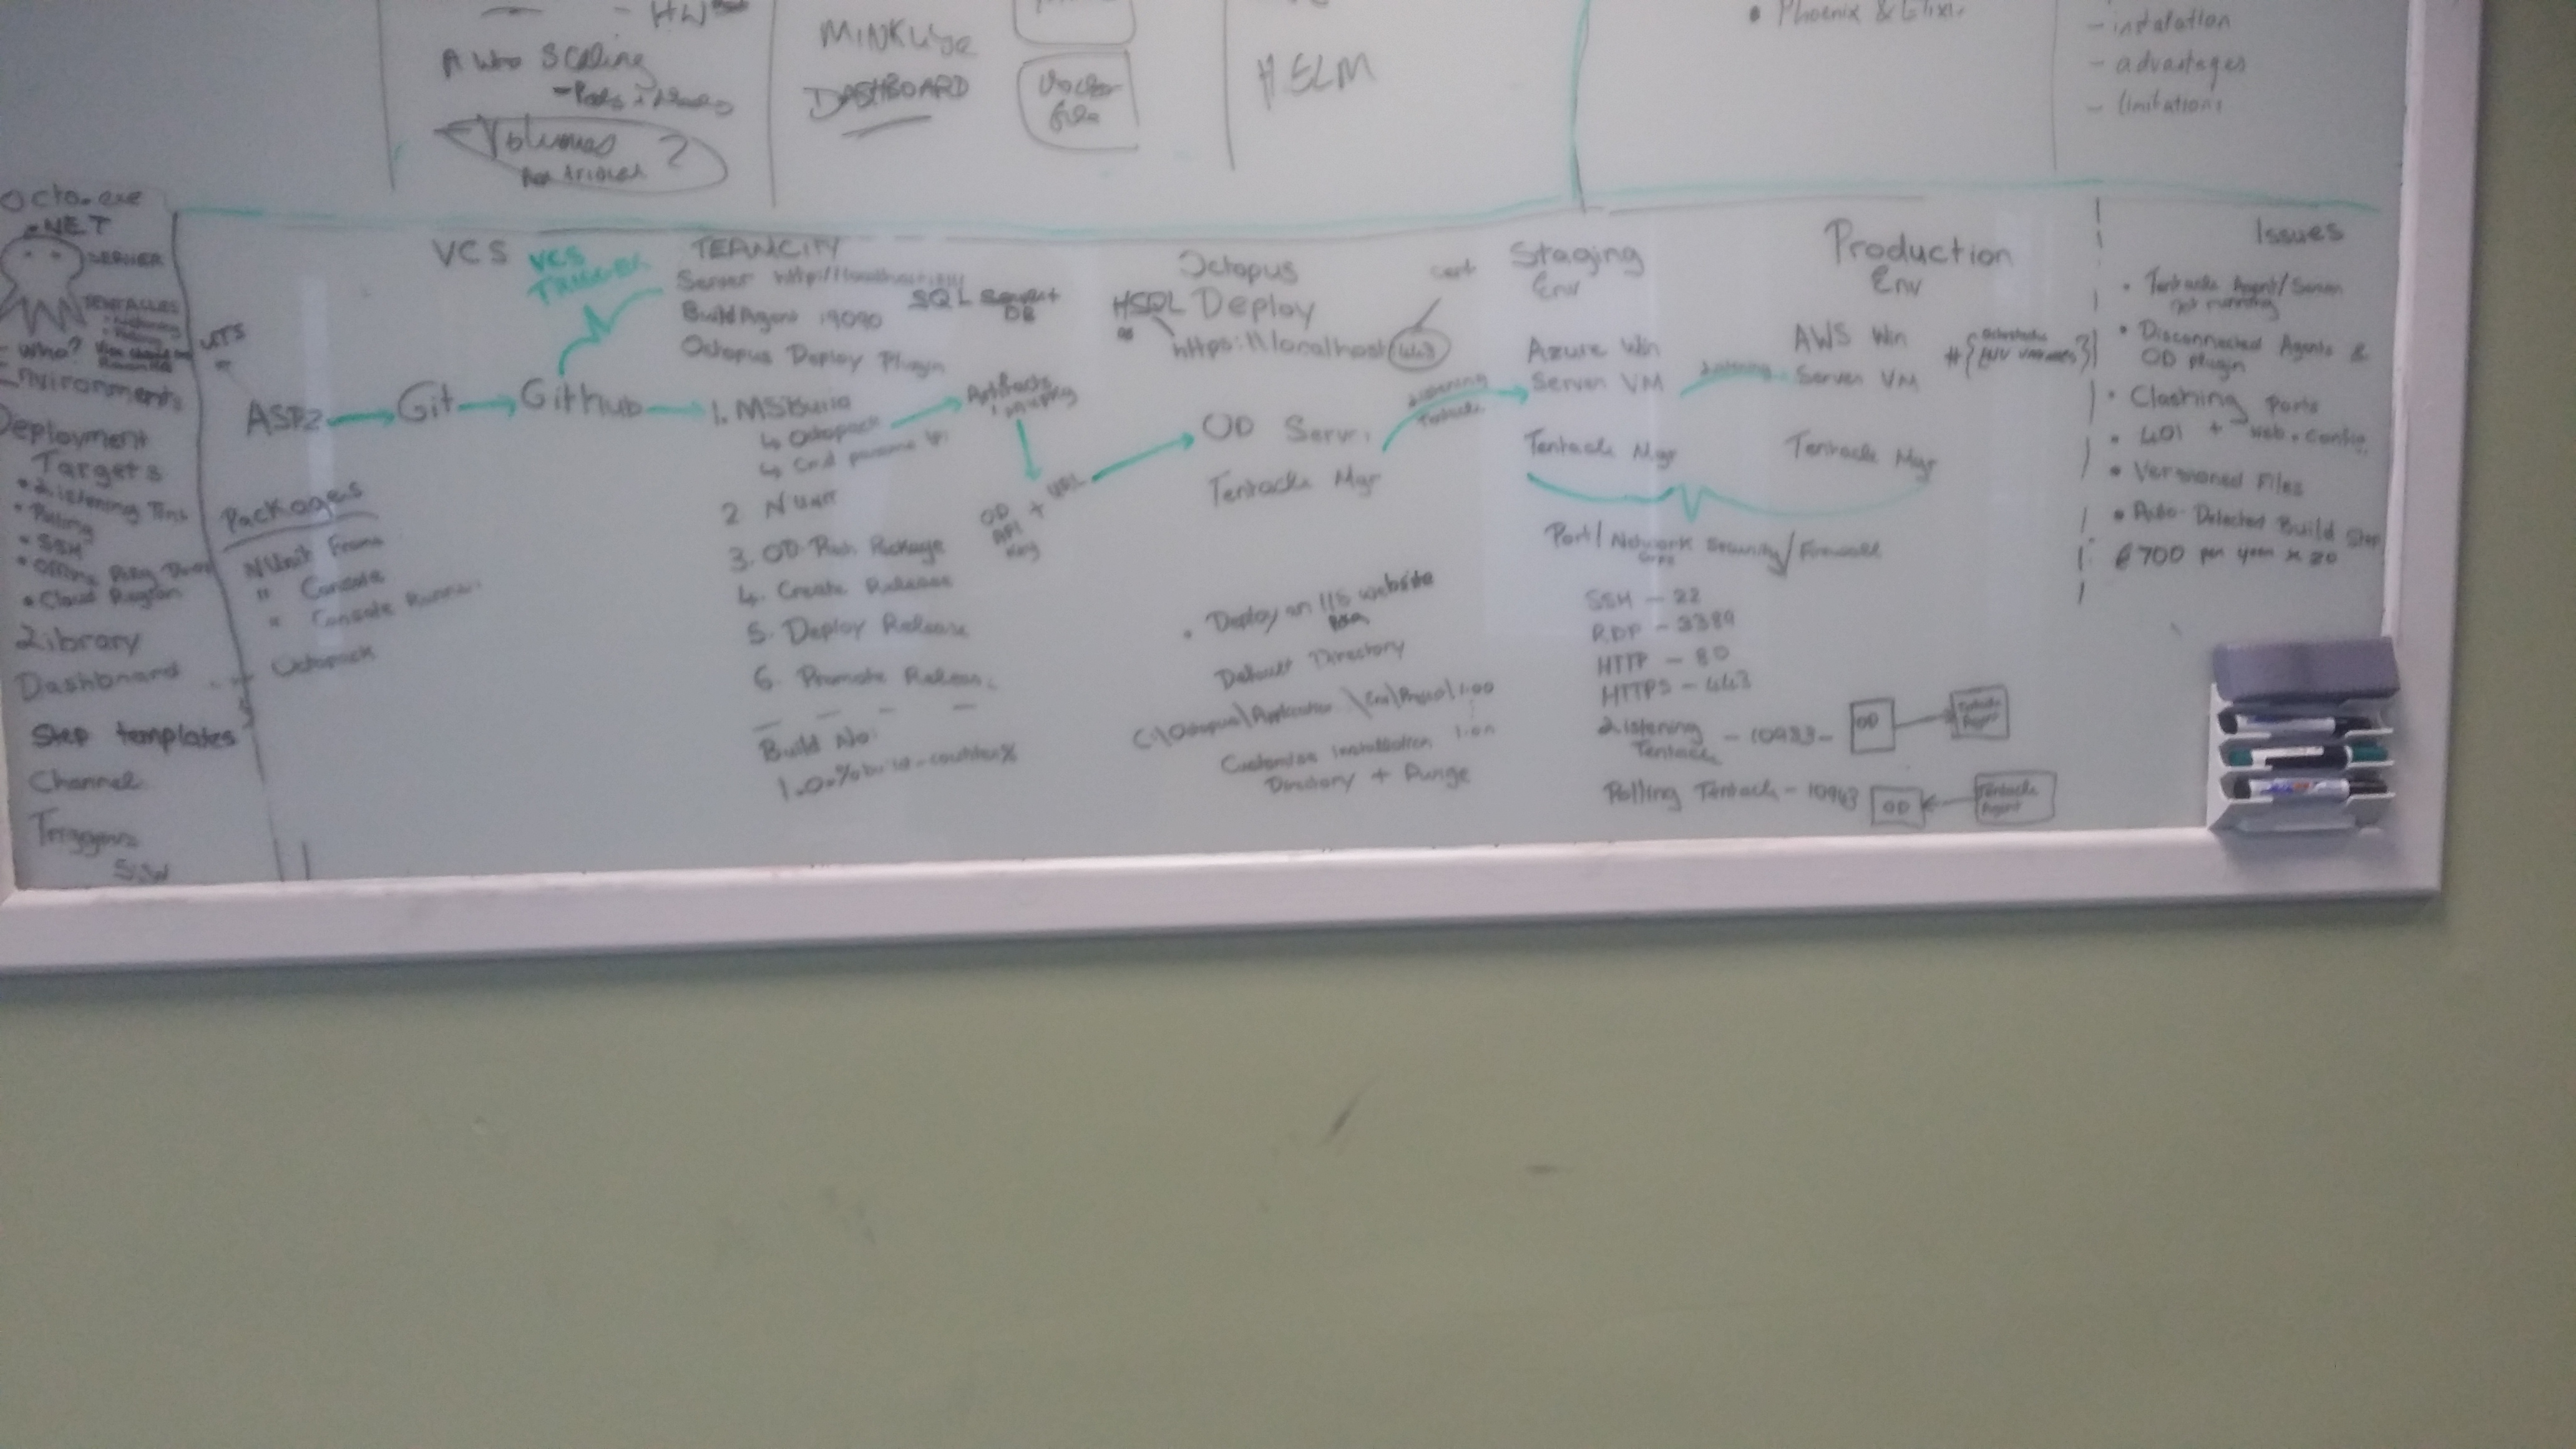 HW
Scaling
Volumes ?
DASHBOARD
Docker
file
HELM
Phoenix &
- instalation
- advantages
- limitations
Octo.exe
.NET
SERVER
TENTACLES
Who?
Environments
Deployment
Targets
• Listening Tent
• Polling
• SSH
• Offline Pkg Drop
• Cloud Region
Library
Dashboard
Step templates
Channel
Triggers
VCS
VCS
TRIGGER
ASP2
Git
Github
Packages
NUnit Frame
" Console
" Console Runner
Octopack
TEAMCITY
Server
SQL Server
DB
Build Agent :9090
Octopus Deploy Plugin
1. MSBuild
↳ Octopack
↳ Cmd params
2 NUnit
3. OD Push Package
4. Create Release
5. Deploy Release
6. Promote Release
Build No:
1.0.%build-counter%
Artifacts
OD
API
Key
+ URL
Octopus
Deploy
HSQL
https://localhost:443
cert
OD Server
Tentacle Mgr
• Deploy an IIS website
Default Directory
Customise installation
Directory + Purge
Staging
Env
Azure Win
Server VM
Listening
Tentacle
Tentacle Mgr
Production
Env
AWS Win
Server VM
Tentacle Mgr
Port / Network Security / Firewall
SSH - 22
RDP - 3389
HTTP - 80
HTTPS - 443
Listening
Tentacle - 10933 - OD Tentacle Agent
Polling Tentacle - 10943 OD Tentacle Agent
Issues
• Tentacle Agent/Server
not running
• Disconnected Agents &
OD plugin
• Clashing Ports
• 401 + web.config
• Versioned Files
• Auto-Detected Build Step
€700 per year x 20